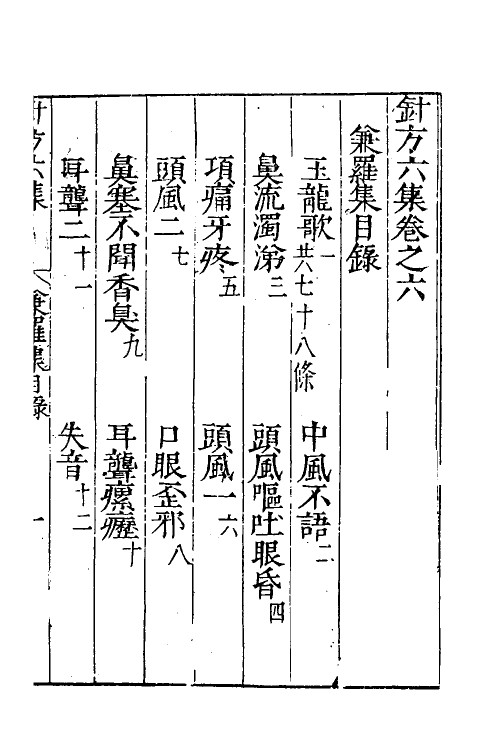 針方六集卷之六
兼羅集目錄
玉龍歌一共七十八條 中風不語二
鼻流濁涕三 頭風嘔吐眼昏四
項痛牙疼五 頭風一六
頭風二七 口眼歪邪八
鼻塞不聞香臭九 耳聾瘰癧十
耳聾二十一 失音十二
針方六集 兼羅集目錄 一